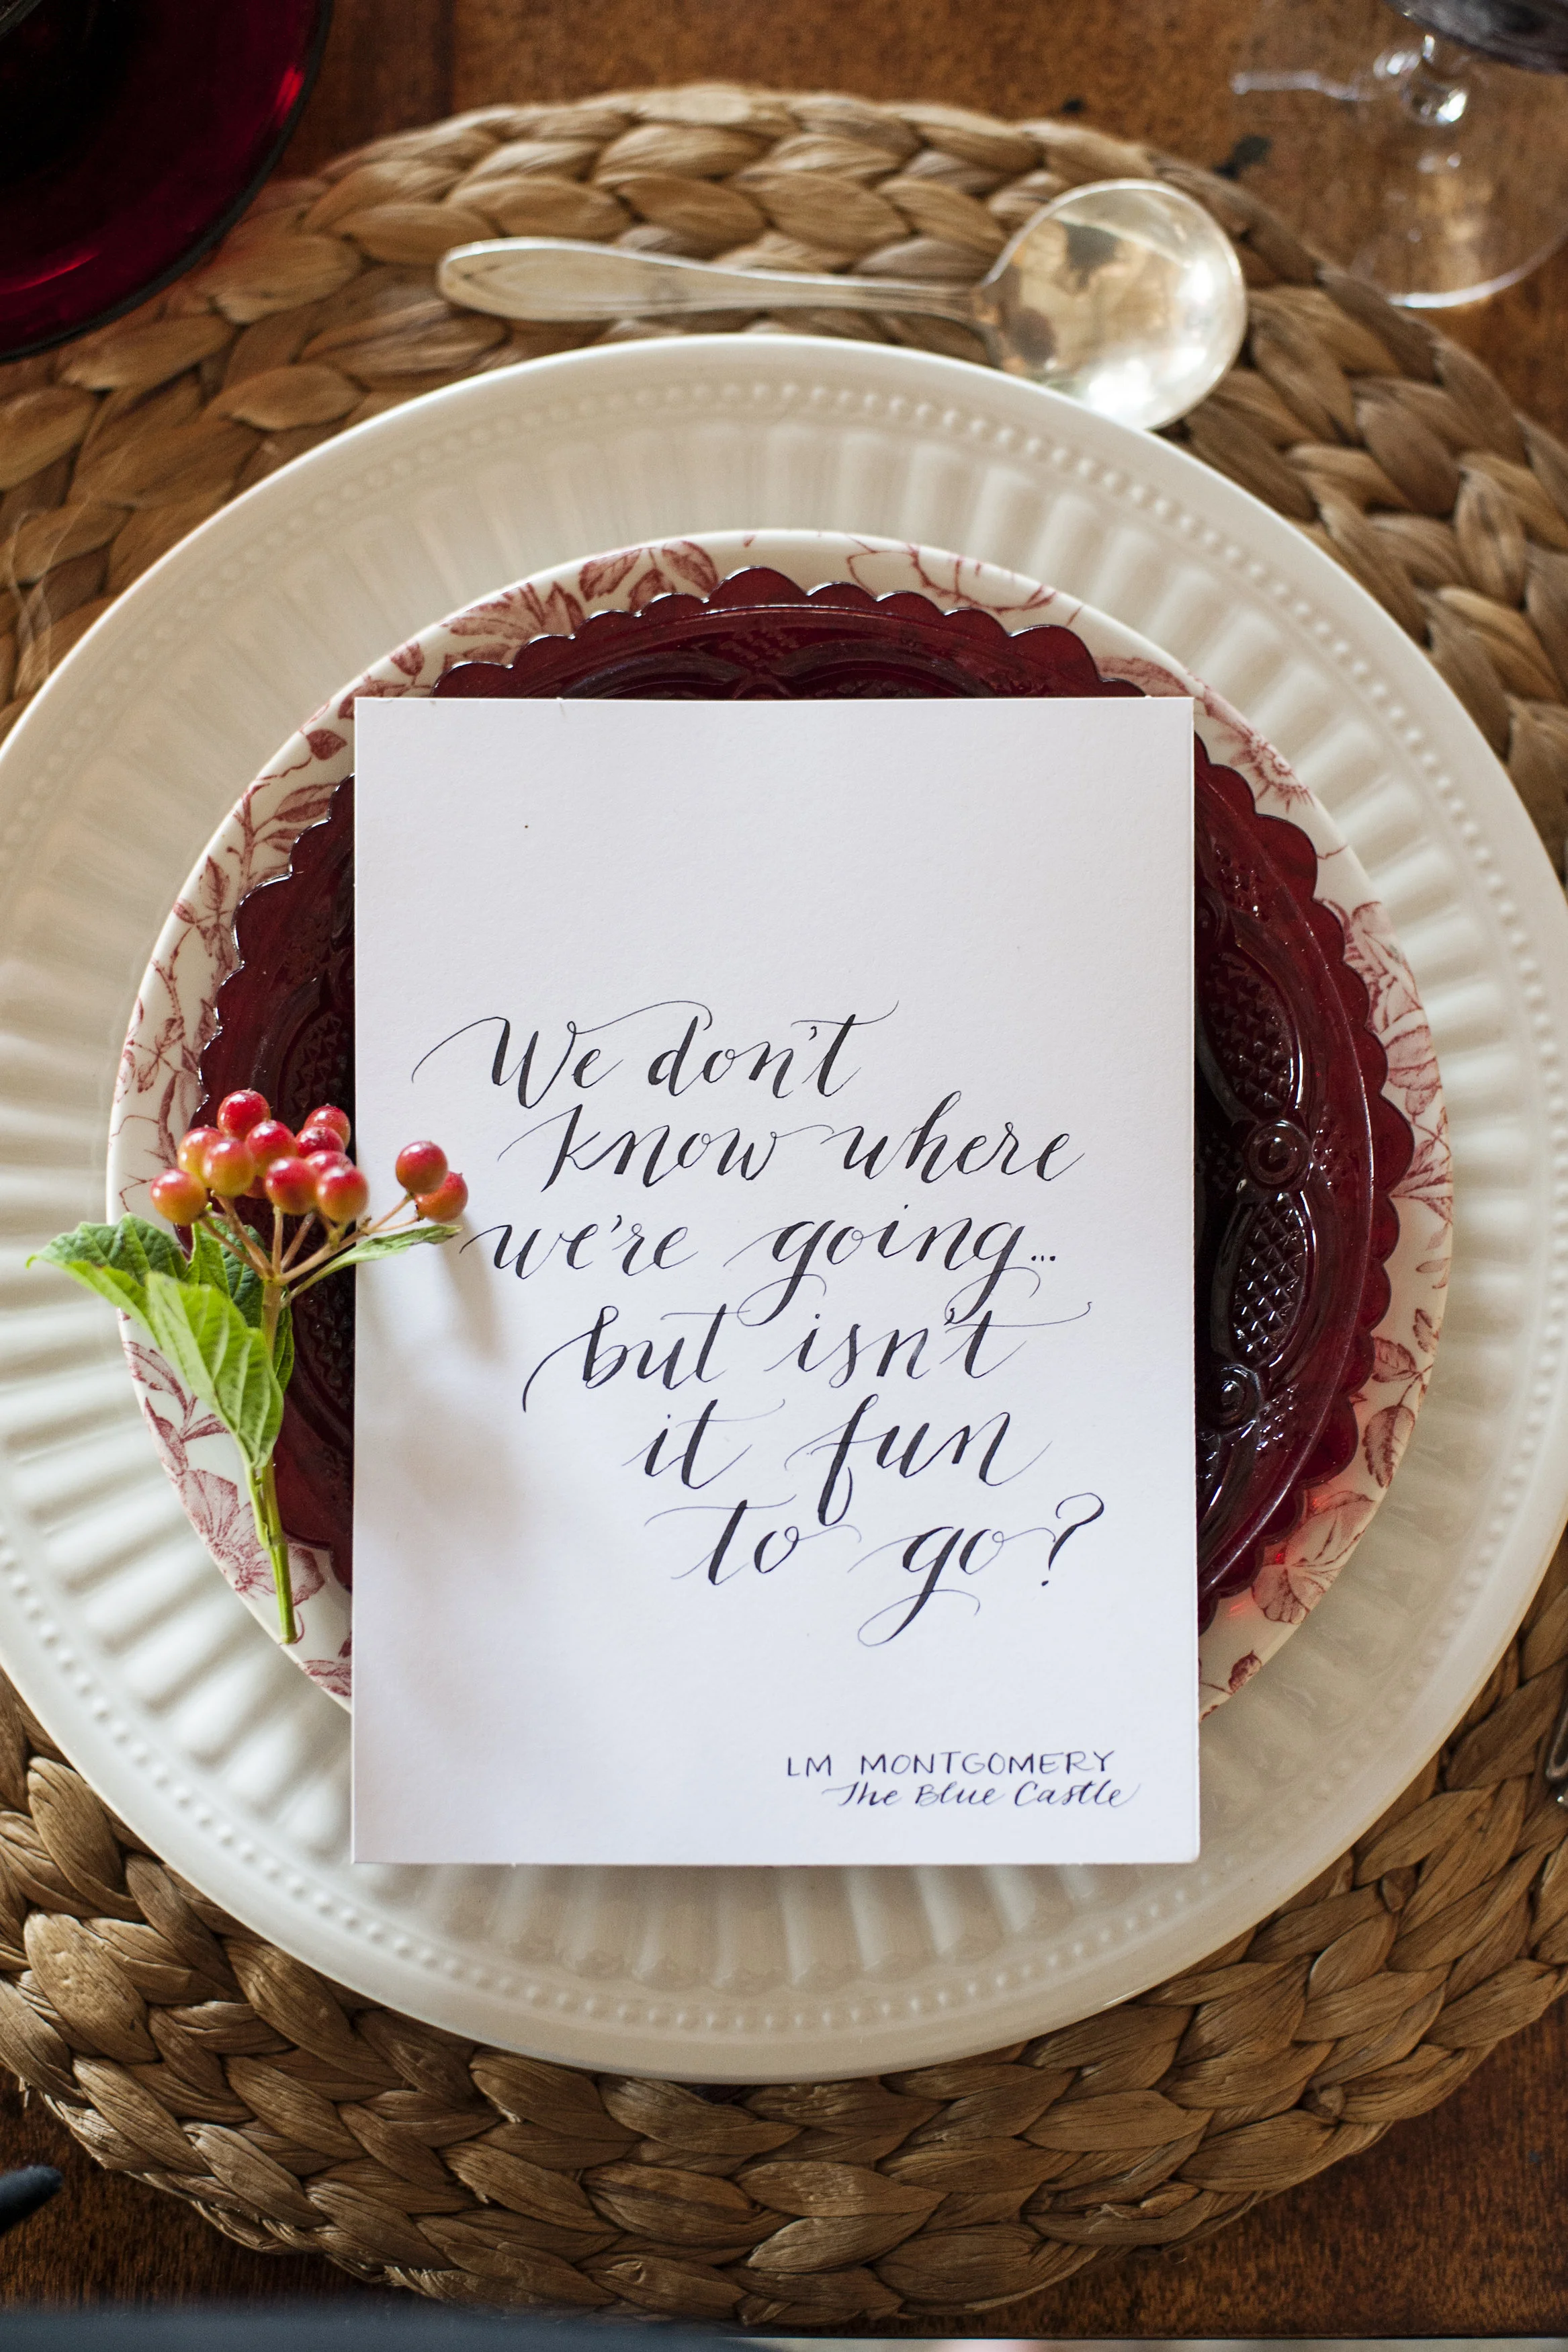 We don't
know where
we're going...
but isn't
it fun
to go?
LM MONTGOMERY
The Blue Castle